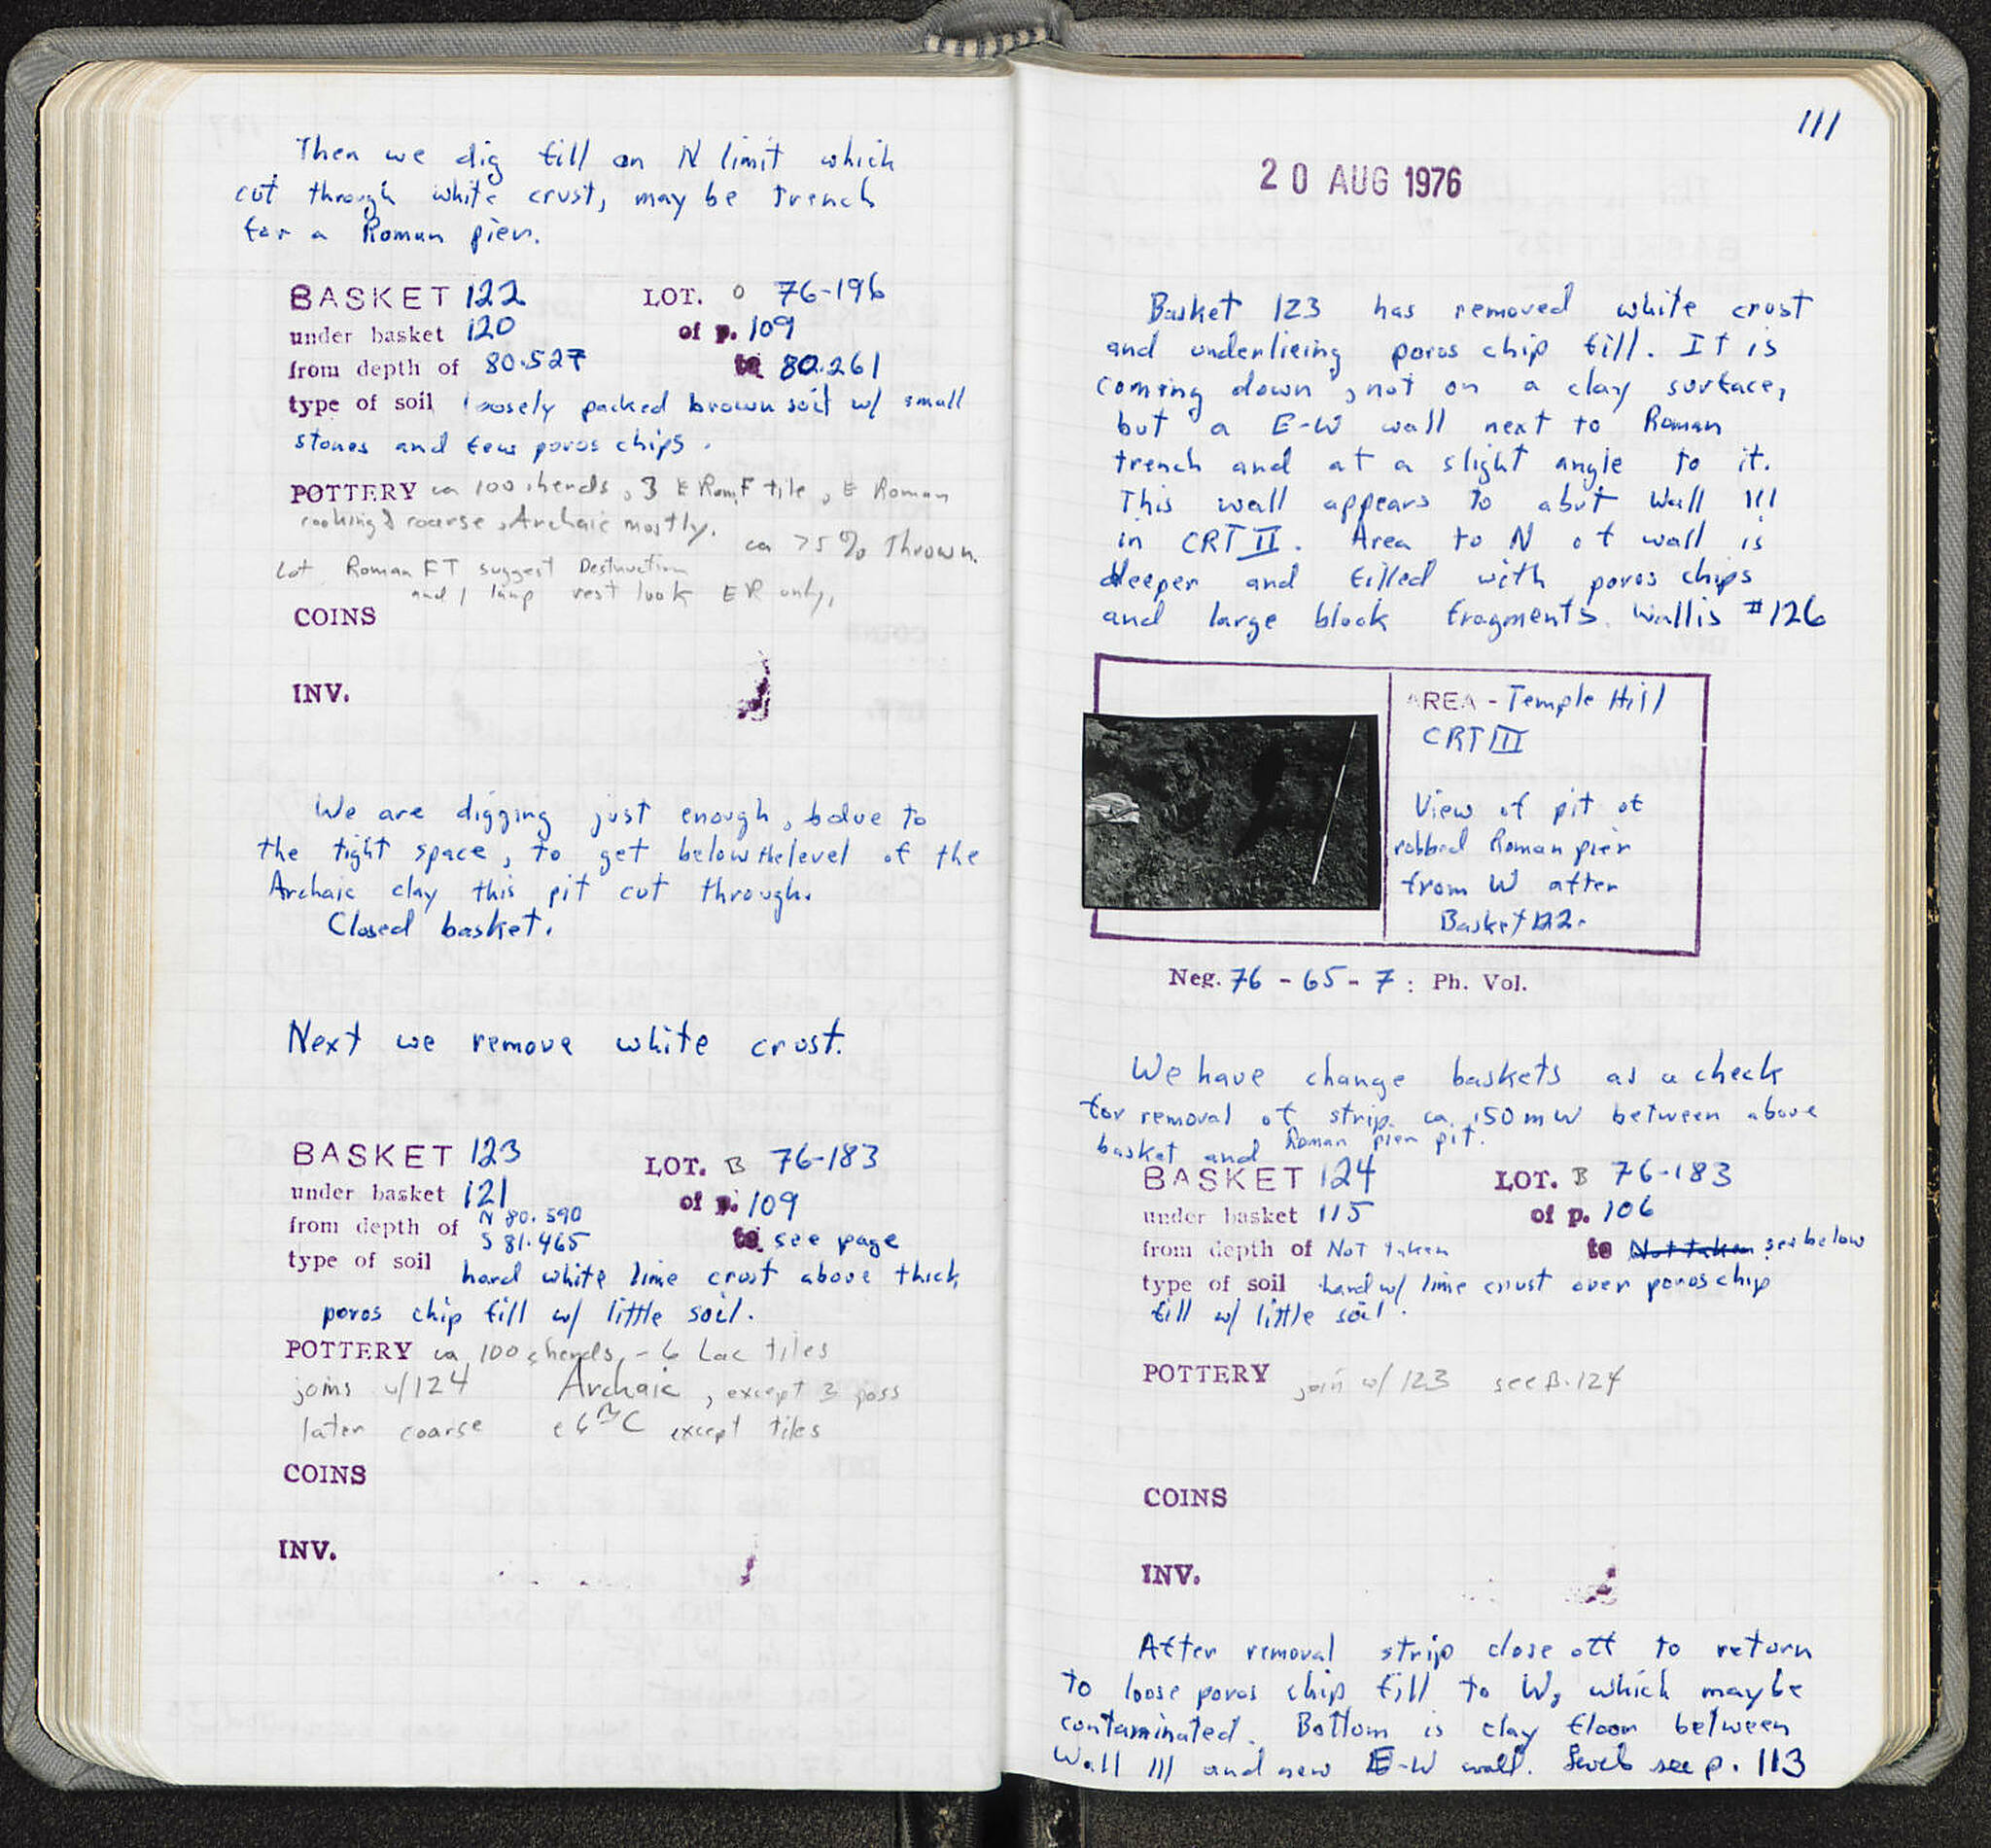 Then we dig fill on N limit which
cut through white crust, may be trench
for a Roman pier.
BASKET 122 LOT. 0 76-196
under basket 120 of p. 109
from depth of 80.527 to 80.261
type of soil loosely packed brown soil w/ small
stones and few poros chips.
POTTERY ca 100 sherds, 3 E Rom. F tile, E Roman
cooking & coarse, Archaic mostly.
ca 75% Thrown.
Lot Roman FT suggest Destruction
and 1 lamp rest look ER only,
COINS
INV.
We are digging just enough, due to
the tight space, to get below the level of the
Archaic clay this pit cut through.
Closed basket.
Next we remove white crust.
BASKET 123 LOT. B 76-183
under basket 121 of p. 109
from depth of N 80.590
S 81.465 to see page
type of soil hard white lime crust above thick
poros chip fill w/ little soil.
POTTERY ca 100 sherds, - 6 Lac tiles
joins w/124 Archaic, except 3 poss
later coarse e 6th C except tiles
COINS
INV.
111
20 AUG 1976
Basket 123 has removed white crust
and underlieing poros chip fill. It is
coming down, not on a clay surface,
but a E-W wall next to Roman
trench and at a slight angle to it.
This wall appears to abut Wall 111
in CRT II. Area to N of wall is
deeper and filled with poros chips
and large block fragments. Wall is #126
AREA - Temple Hill
CRT III
View of pit of
robbed Roman pier
from W after
Basket 122.
Neg. 76 - 65 - 7 : Ph. Vol.
We have change baskets as a check
for removal of strip ca .50 m W between above
basket and Roman pier pit.
BASKET 124 LOT. B 76-183
under basket 115 of p. 106
from depth of Not taken to Not taken see below
type of soil hard w/ lime crust over poros chip
fill w/ little soil.
POTTERY join w/ 123 see B. 124
COINS
INV.
After removal strip close off to return
to loose poros chip fill to W, which maybe
contaminated. Bottom is clay floor between
Wall 111 and new E-W wall. Levels see p. 113